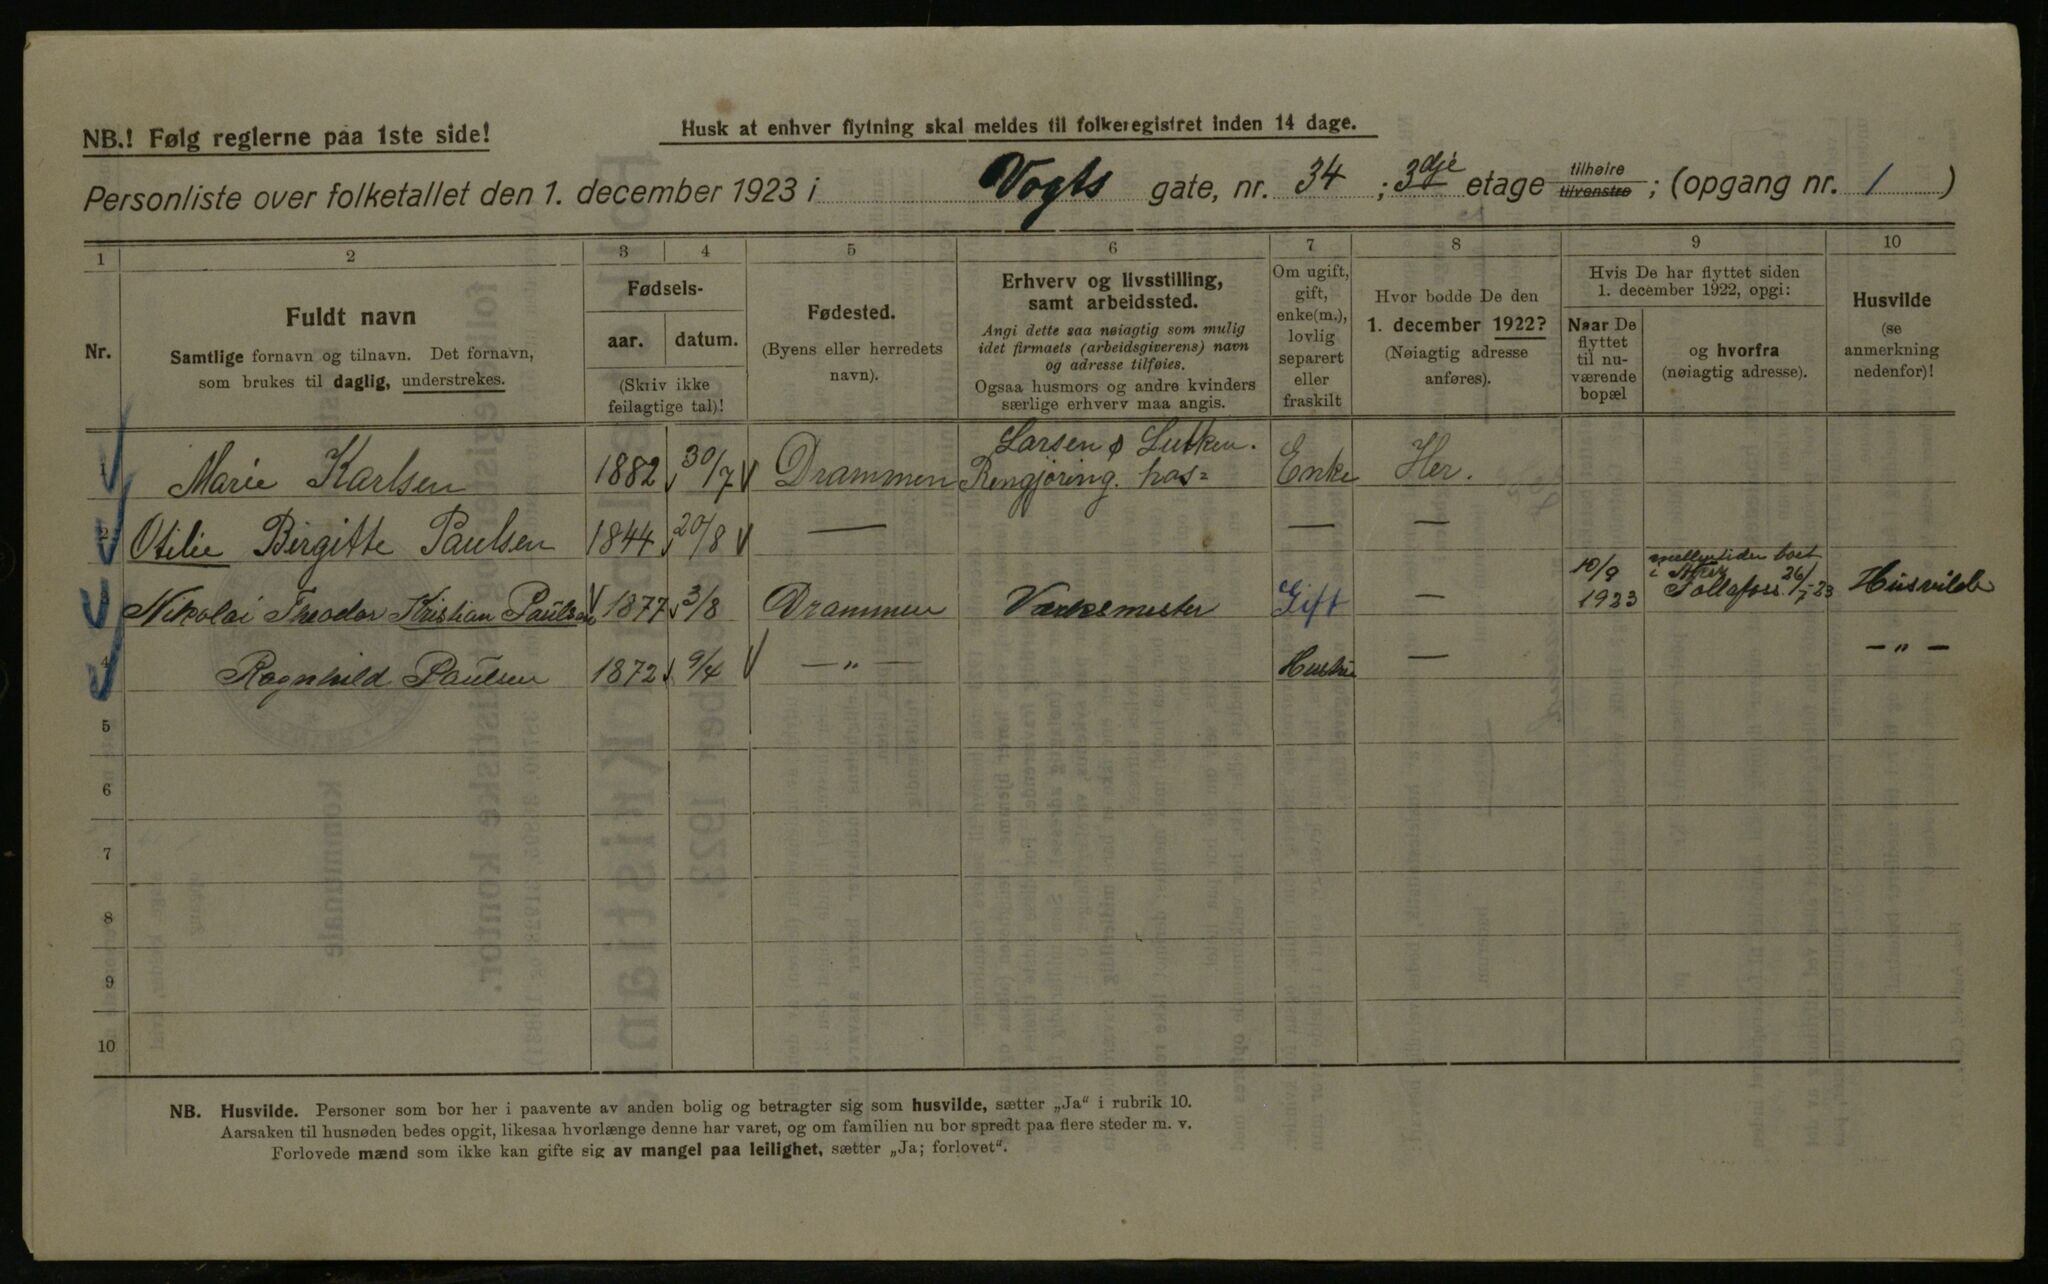 NB.! Følg reglerne paa 1ste side!
Husk at enhver flytning skal meldes til folkeregistret inden 14 dage.
Personliste over folketallet den 1. december 1923 i Vogts gate, nr. 34 ; 3dje etage tilhøire tilvenstre ; (opgang nr. 1 )
1 2 3 4 5 6 7 8 9 10
Nr.
Fuldt navn
Samtlige fornavn og tilnavn. Det fornavn,
som brukes til daglig, understrekes.
Fødsels-
aar. datum.
(Skriv ikke
feilagtige tal)!
Fødested.
(Byens eller herredets
navn).
Erhverv og livsstilling,
samt arbeidssted.
Angi dette saa nøiagtig som mulig
idet firmaets (arbeidsgiverens) navn
og adresse tilføies.
Ogsaa husmors og andre kvinders
særlige erhverv maa angis.
Om ugift,
gift,
enke(m.),
lovlig
separert
eller
fraskilt
Hvor bodde De den
1. december 1922?
(Nøiagtig adresse
anføres).
Hvis De har flyttet siden
1. december 1922, opgi:
Naar De
flyttet
til nu-
værende
bopæl
og hvorfra
(nøiagtig adresse).
Husvilde
(se
anmerkning
nedenfor)!
1 Marie Karlsen 1882 30/7 Drammen Larsen & Lutken. Rengjøring. hos= Enke Her.
2 Otilie Birgitte Paulsen 1844 20/8 — — —
Nikolai Theodor Kristian Paulsen 1877 3/8 Drammen Værksmester Gift — 10/9 1923 mellemtiden boet i Follafoss 26/7-23 Husvilde
4 Ragnhild Paulsen 1872 9/4 — „ — Hustru — — „ —
5
6
7
8
9
10
NB. Husvilde. Personer som bor her i paavente av anden bolig og betragter sig som husvilde, sætter „Ja“ i rubrik 10.
Aarsaken til husnøden bedes opgit, likesaa hvorlænge denne har varet, og om familien nu bor spredt paa flere steder m. v.
Forlovede mænd som ikke kan gifte sig av mangel paa leilighet, sætter „Ja; forlovet“.